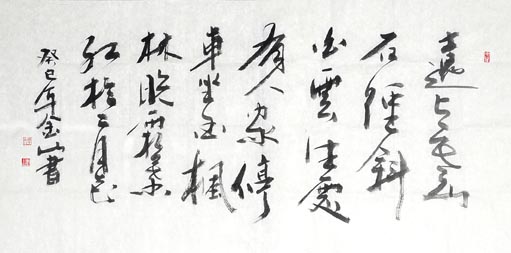 遠上寒山
石徑斜
白雲生處
有人家停
車坐愛楓
林晚霜葉
紅於二月花
癸巳年金山書